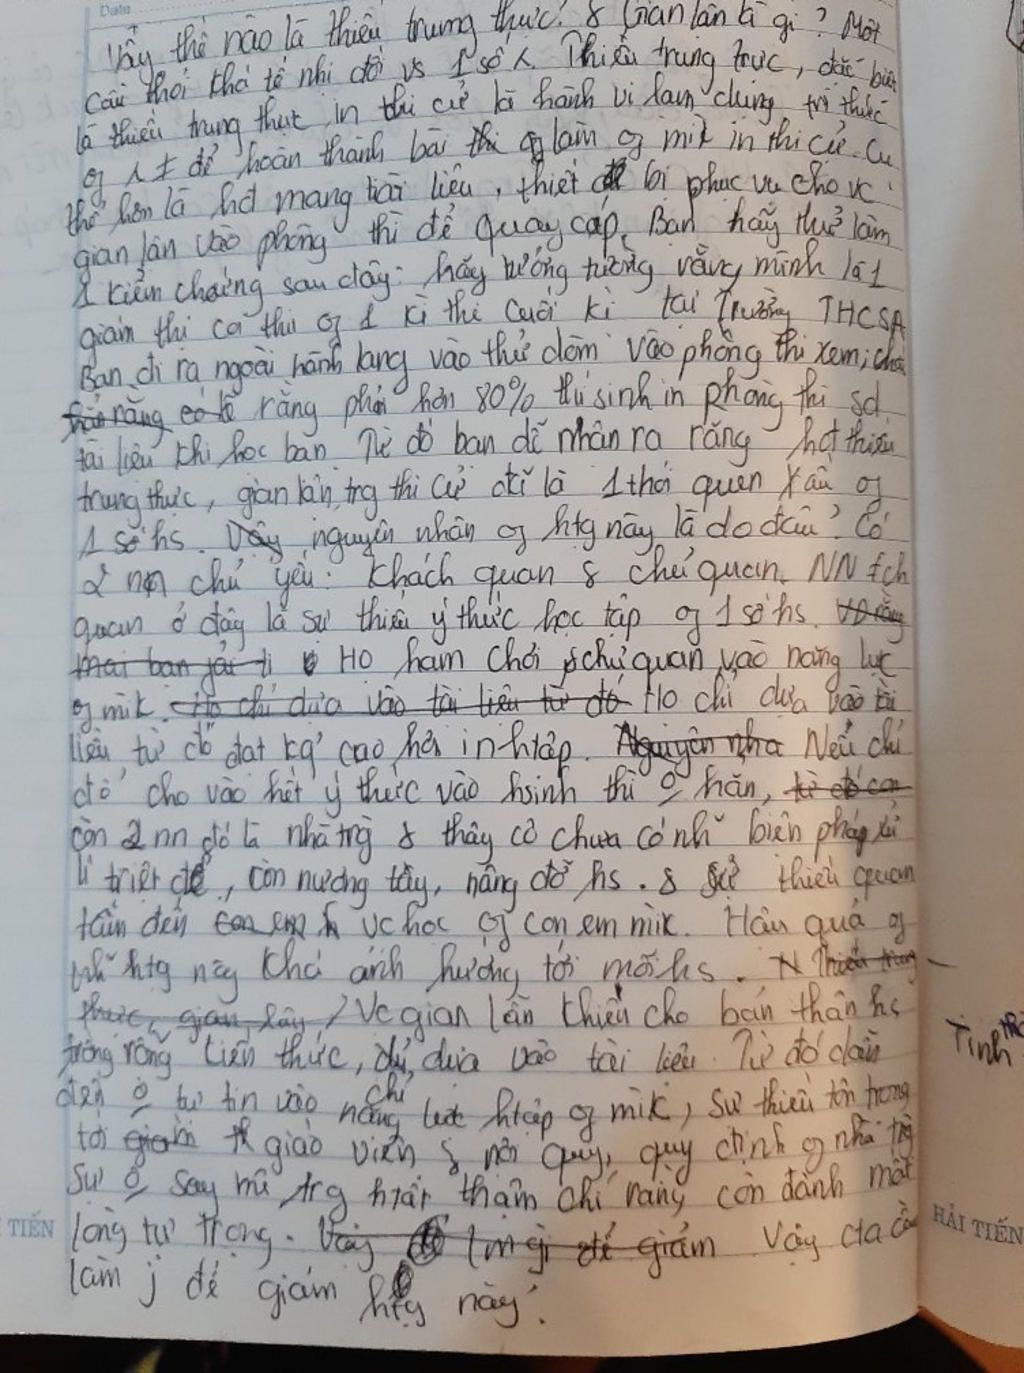 Date
Vậy thế nào là thiếu trung thực? & Gian lận là gì? Một
câu thời khá tế nhị đối vs 1 số λ. Thiếu trung trực, đặc biệt
là thiếu trung thực in thi cử là hành vi lạm dụng tri thức
of λ ≠ để hoàn thành bài thi of làm of mik in thi cử. Cụ
thể hơn là hđ mang tài liệu, thiết bị phục vụ cho vc
gian lận vào phòng thi để quay cóp. Bạn hãy thử làm
1 kiểm chứng sau đây: hãy tưởng tượng rằng mình là 1
giám thị coi thi of 1 kì thi cuối kì tại Trường THCSA
Bạn đi ra ngoài hành lang vào thử dòm vào phòng thi xem,
rằng phải hơn 80% thí sinh in phòng thi sd
tài liệu khi học bạn Từ đó bạn dễ nhận ra rằng hđ thiếu
trung thực, gian lận trg thi cử đã là 1 thói quen xấu of
1 số hs. Vậy nguyên nhân of htg này là do đâu? Có
2 nn chủ yếu: Khách quan & chủ quan. NN
quan ở đây là sự thiếu ý thức học tập of 1 số hs.
Họ ham chơi, chủ quan vào năng lực
of mik. Họ chỉ dựa vào tài liệu từ đó Họ chỉ dựa vào tài
liệu từ đó đạt kq' cao hơn in htập. Nguyên nha Nếu chỉ
đổ cho vào hết ý thức vào hsinh thì o hẳn,
còn 2 nn đó là nhà trg & thầy cô chưa có nh~ biện pháp xử
lí triệt để, còn nương tây, nâng đỡ hs. & sự thiếu quan
tâm đến con em vc học of con em mik. Hậu quả of
nh~ htg này khá ảnh hưởng tới mỗi hs. Thiếu trung
thực, gian lận, Vc gian lận khiến cho bản thân hs
trống rỗng kiến thức, chỉ dựa vào tài liệu. Từ đó dẫn
đến o tự tin vào năng lực htập of mik, sự thiếu tôn trọng
tới giáo viên & nội quy, quy định of nhà trg
Sự o say mê trg htập thậm chí rằng còn đánh mất
lòng tự trọng. Vậy lm gì để giảm Vậy cta cần
làm j để giảm htg này?
Tính
TIẾN
HẢI TIẾN